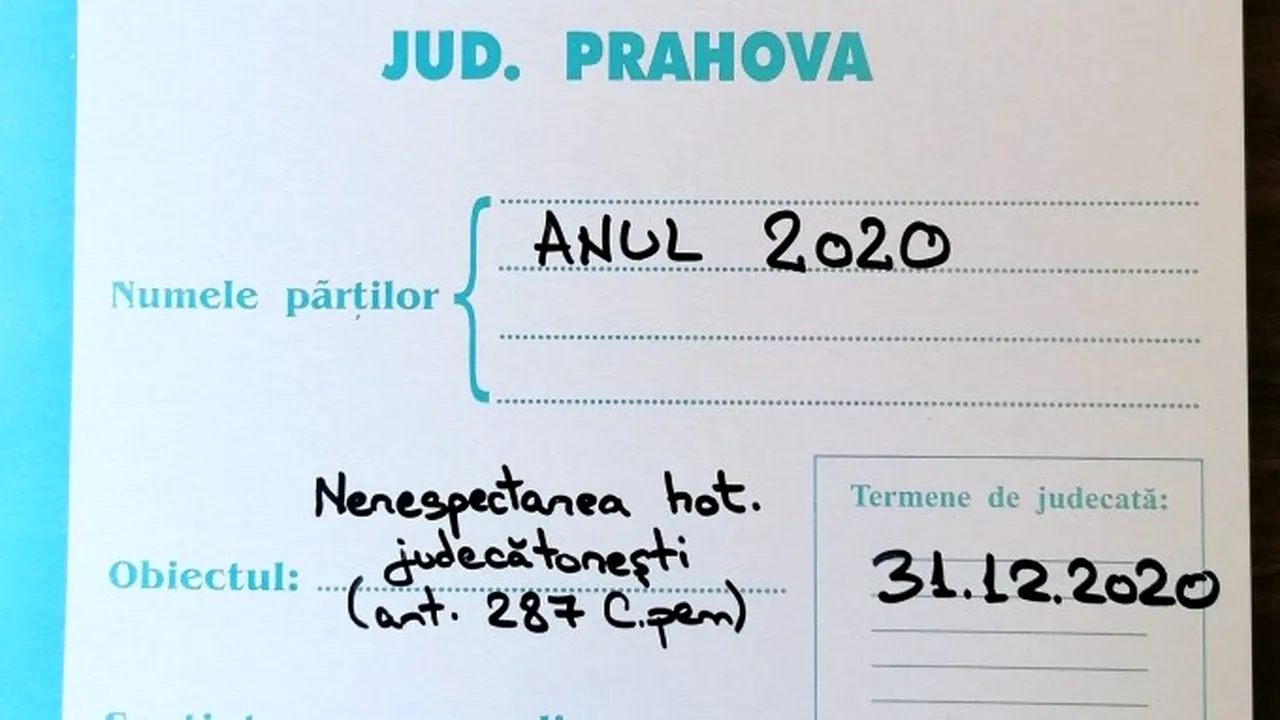 JUD. PRAHOVA
ANUL 2020
Numele părților
Nerespectarea hot.
judecătorești
Obiectul:
(art. 287 C.pen)
Termene de judecată:
31.12.2020